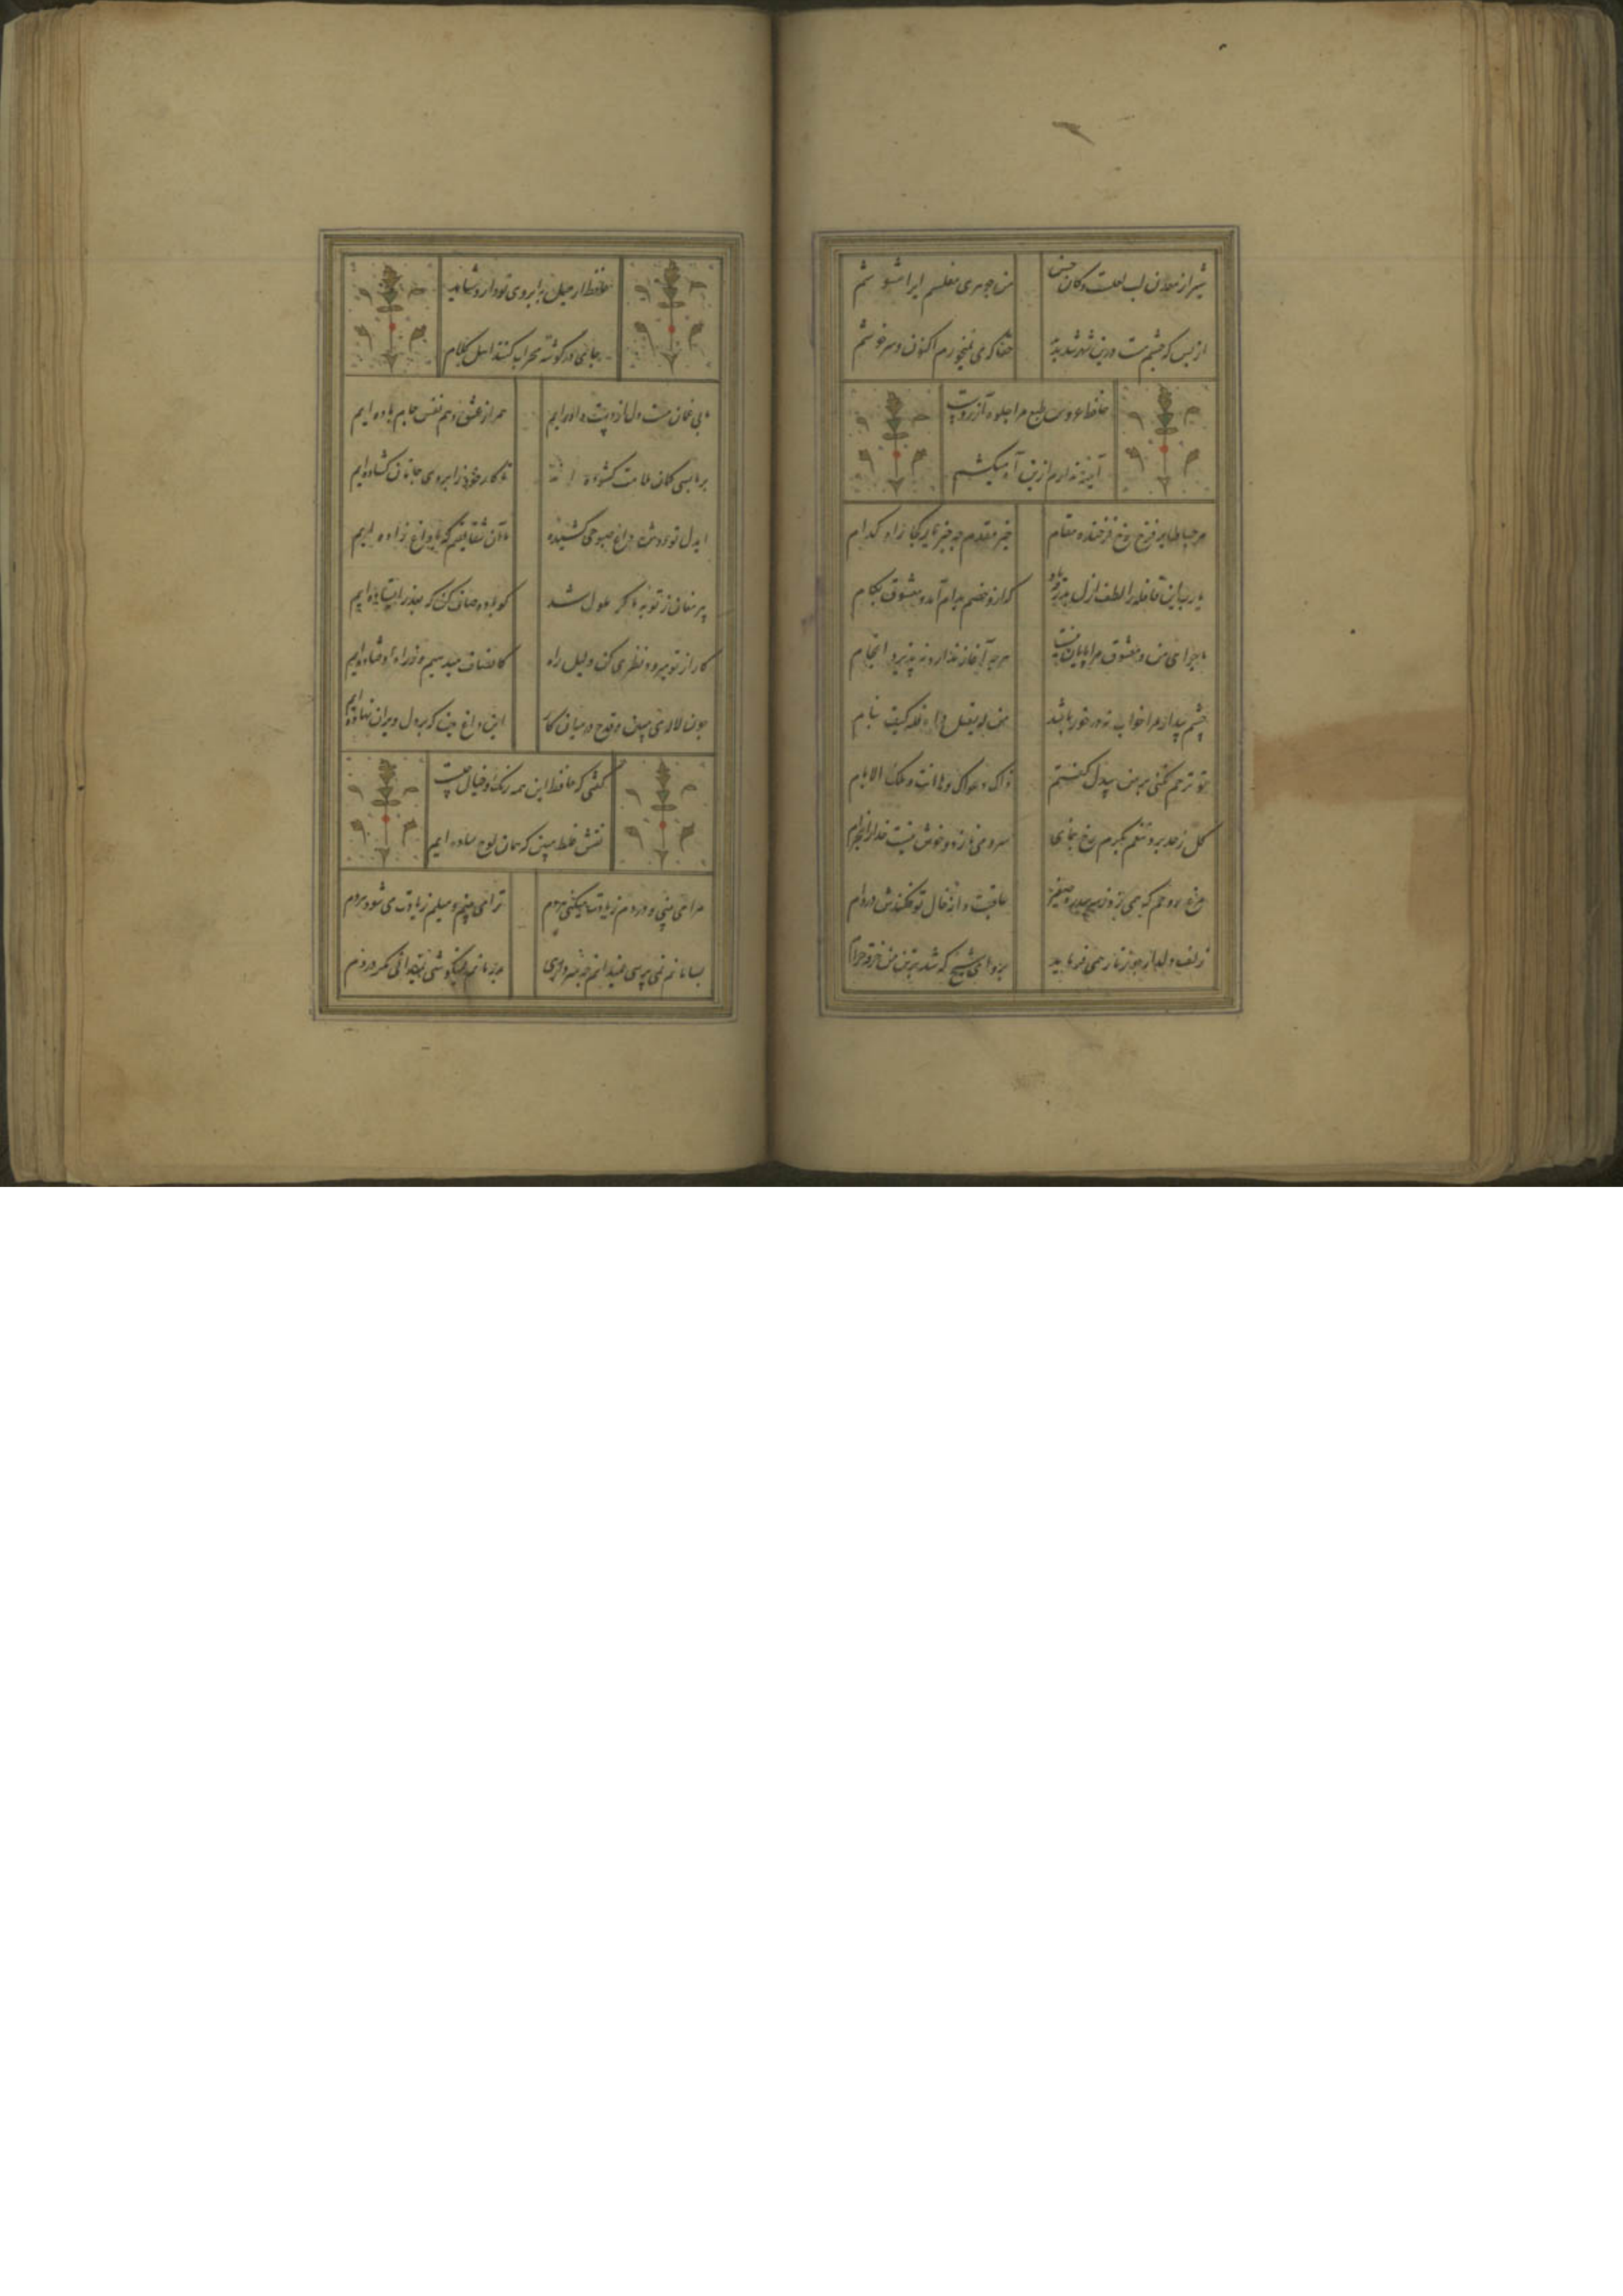 شیراز معدن لب لعلست و کان حسن
من جوهری مفلسم ایرا مشوشم
از بس که چشم مست درین شهر دیده
حقا که می نمیخورم اکنون و سرخوشم
حافظ عروس طبع مرا جلوه آرزوست
آیینه ندارم ازین آه میکشم
مرحبا طایر فرخ رخ فرخنده مقام
خیر مقدم چه خبر یار کجا راه کدام
یا رب این قافله را لطف ازل بدرقه باد
که ازو خصم بدام آمد و معشوق بکام
ماجرای من و معشوق مرا پایان نیست
هر چه آغاز ندارد نپذیرد انجام
چشم بیدار مرا خواب نه در خور باشد
تو ترحم نکنی بر من بیدل گفتم
ذاک دعوای وها انت و تلک الایام
گل ز حد برد تنعم بکرم رخ بنمای
سرو می نازد و خوش نیست خدا را بخرام
مرغ روحم که همی زد ز سر سدره صفیر
عاقبت دانه خال تو فکندش در دام
زلف دلدار چو زنار همی فرماید
برو ای شیخ که شد بر تن من خرقه حرام
حافظ ار میل به ابروی تو دارد شاید
جای در گوشه محراب کنند اهل کلام
ما بی غمان مست دل از دست داده ایم
همراز عشق و هم نفس جام باده ایم
بر ما بسی کمان ملامت کشیده اند
تا کار خود ز ابروی جانان گشاده ایم
ای دل تو دوش داغ صبوحی کشیده
ما آن شقایقیم که با داغ زاده ایم
پیر مغان ز توبه ما گر ملول شد
گو باده صاف کن که بعذر ایستاده ایم
کار از تو میرود نظری کن دلیل راه
کانصاف میدهیم و ز راه اوفتاده ایم
چون لاله می مبین و قدح در میان کار
این داغ بین که بر دل ویران نهاده ایم
گفتی که حافظ این همه رنگ و خیال چیست
نقش غلط مبین که همان لوح ساده ایم
مرا می بینی و دردم زیادت میکنی هر دم
ترا می بینم و میلم زیادت می شود هر دم
بسامانم نمی پرسی نمیدانم چه سر داری
بدرمانم نمیکوشی نمیدانی مگر دردم